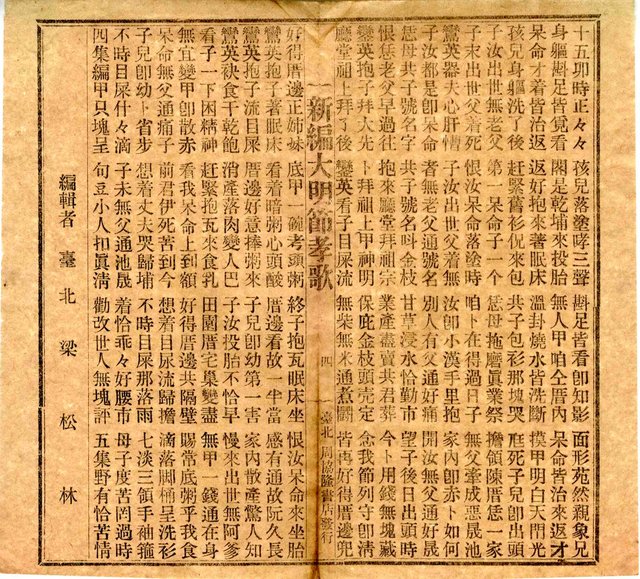 十五卯時正々々 孩兒落塗哮三聲 斟足皆看卽知影 面形苑然親象兄
身軀斟足皆覓看 閣是乾埔來投胎 無人甲咱仝厝內 呆命皆治來返才
呆命才着皆治 返好抱來著眠床 溫卦燒水皆洗斷 摸甲明白天門光
孩兒身軀洗了後 赶緊舊衫倪來包 共子包衫那塊哭 庭死子兒卽出頭
子汝出世無老父 第一呆命子一个 恁母拖磨眞業祭 擔領陳厝恁一家
子來出世父着死 恨汝呆命落塗時 咱卜在得過日子 無父牽成惡晟池
鸞英器夫心肝憯 子汝出世父着無 汝卽小漢手里抱 家內卽赤卜如何
子汝都是卽呆命 者無老父通號名 別人有父通好痛 開汝無父通好晟
恁母共子號名字 共子號名呌金枝 甘草浸水恰勤市 望子後日出頭時
恨恁老父早過往 抱來廳堂拜祖宗 理盡賣共君葬 今卜用錢無塊藏
鸞英抱子拜大先 卜拜祖上甲神明 保庇金枝頭壳定 念我節列守卽淸
廳堂祖上拜了後 鸞英看子目屎流 無柴無米通煮罰 皆再好得厝邊兜
新編大明節孝歌 四 臺北周協隆書店發行
好得厝邊正姉妹 底甲一碗考頭粥 終子抱瓦眠床坐 恨汝呆命來坐胎
鸞英抱子著眠床 看着暗粥心頭酸 厝邊看故一半當 感有通故阮久長
鸞英抱子流目屎 厝邊好意捧粥來 子兒卽幼第一害 家內散產驚人知
鸞英袂食干乾飽 消產落肉變人巴 子汝投胎不恰早 慢來出世無阿爹
看子一下困精神 赶緊抱瓦來食乳 田園厝宅巢變盡 無甲一錢通在身
無宜變甲卽散赤 看我呆命上到額 好得厝邊共隔壁 賜常底粥乎我食
呆命無父通痛子 前君伊死苦到今 想着目屎流歸擔 滴落脚桶呈洗衫
子兒卽幼卜省步 想着丈夫哭歸埔 不時目屎那落雨 七淡三領手袖箍
不時目屎什々滴 子未無父通池晟 着恰乖々好腰市 母子度苦罔過時
四集編甲只塊呈 句豆小人扣眞淸 勸改世人無塊評 五集野有恰苦情
編輯者 臺北 梁松林